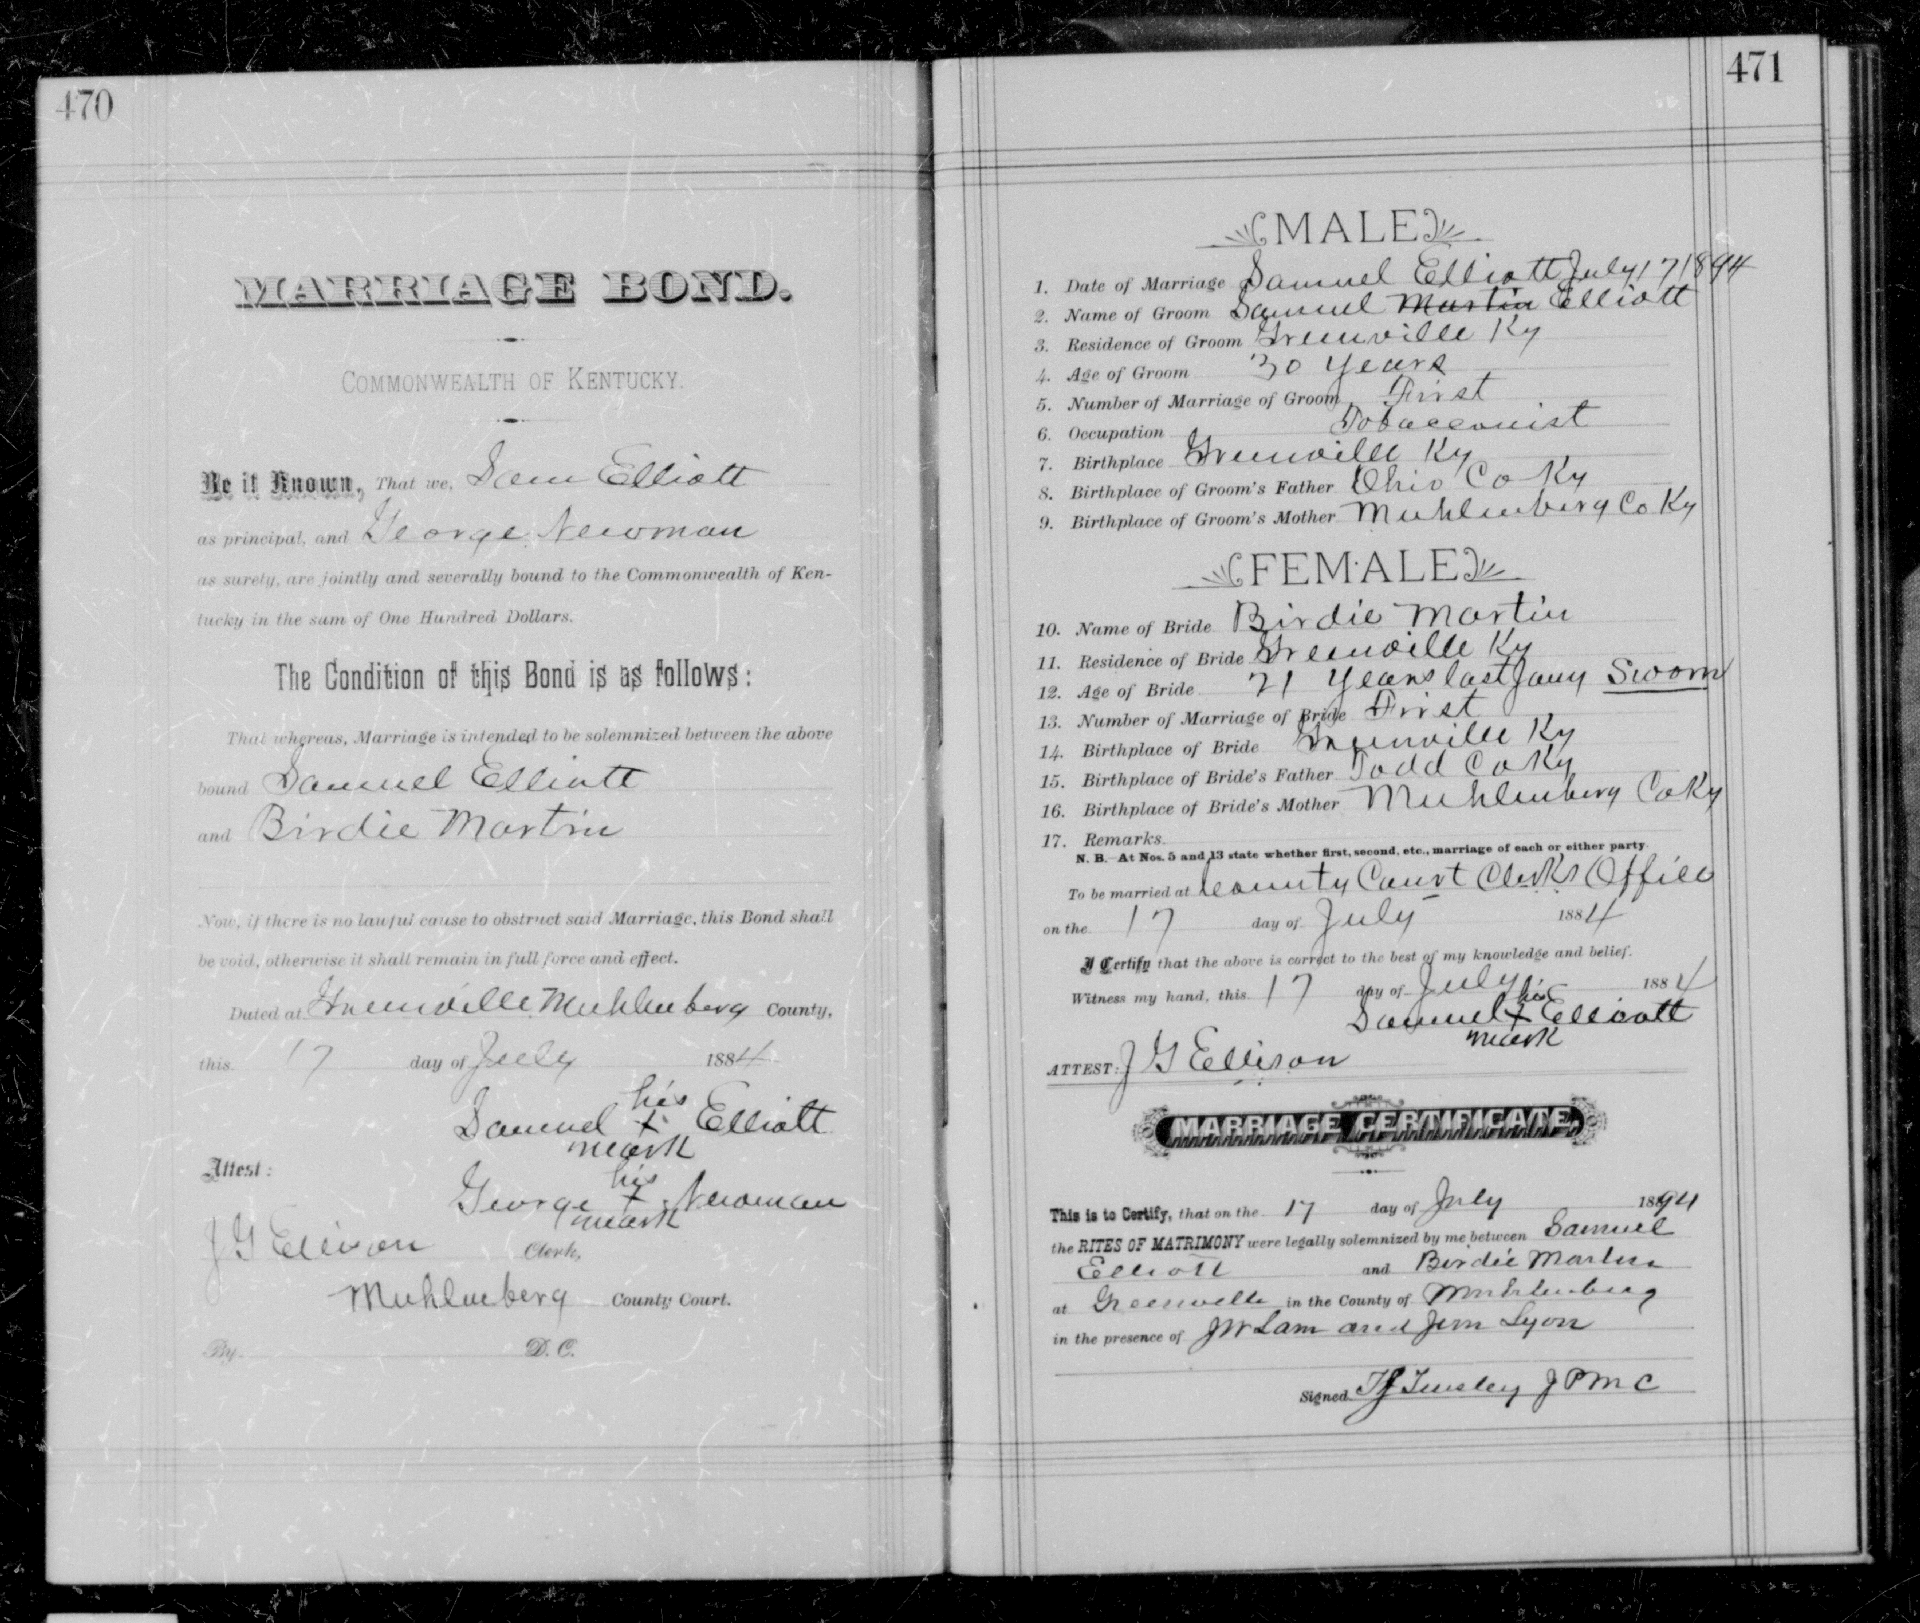 470
MARRIAGE BOND.
COMMONWEALTH OF KENTUCKY.
Be it Known, That we, Sam Elliott
as principal, and George Newman
as surety, are jointly and severally bound to the Commonwealth of Ken-
tucky in the sum of One Hundred Dollars.
The Condition of this Bond is as follows:
That whereas, Marriage is intended to be solemnized between the above
bound Samuel Elliott
and Birdie Martin
Now, if there is no lawful cause to obstruct said Marriage, this Bond shall
be void, otherwise it shall remain in full force and effect.
Dated at Greenville Muhlenberg County,
this 17 day of July 1884
his
Samuel x Elliott
mark
Attest:
his
George x Newman
mark
J G Ellison Clerk,
Muhlenberg County Court.
By D. C.
471
MALE
1. Date of Marriage Samuel Elliott July 17 1894
2. Name of Groom Samuel Martin Elliott
3. Residence of Groom Greenville Ky
4. Age of Groom 30 years
5. Number of Marriage of Groom First
6. Occupation Tobacconist
7. Birthplace Greenville Ky
8. Birthplace of Groom's Father Ohio Co Ky
9. Birthplace of Groom's Mother Muhlenberg Co Ky
FEMALE
10. Name of Bride Birdie Martin
11. Residence of Bride Greenville Ky
12. Age of Bride 21 years last Jany Sworn
13. Number of Marriage of Bride First
14. Birthplace of Bride Greenville Ky
15. Birthplace of Bride's Father Todd Co Ky
16. Birthplace of Bride's Mother Muhlenberg Co Ky
17. Remarks
N. B.—At Nos. 5 and 13 state whether first, second, etc., marriage of each or either party
To be married at County Court Clerks Office
on the 17 day of July 1884
I Certify that the above is correct to the best of my knowledge and belief.
Witness my hand, this 17 day of July 1884
his
Samuel x Elliott
mark
ATTEST: J G Ellison
MARRIAGE CERTIFICATE.
This is to Certify, that on the 17 day of July 1894
the RITES OF MATRIMONY were legally solemnized by me between Samuel
Elliott and Birdie Martin
at Greenville in the County of Muhlenberg
in the presence of J W Lam and Jim Lyon
Signed T J Tinsley J P M C